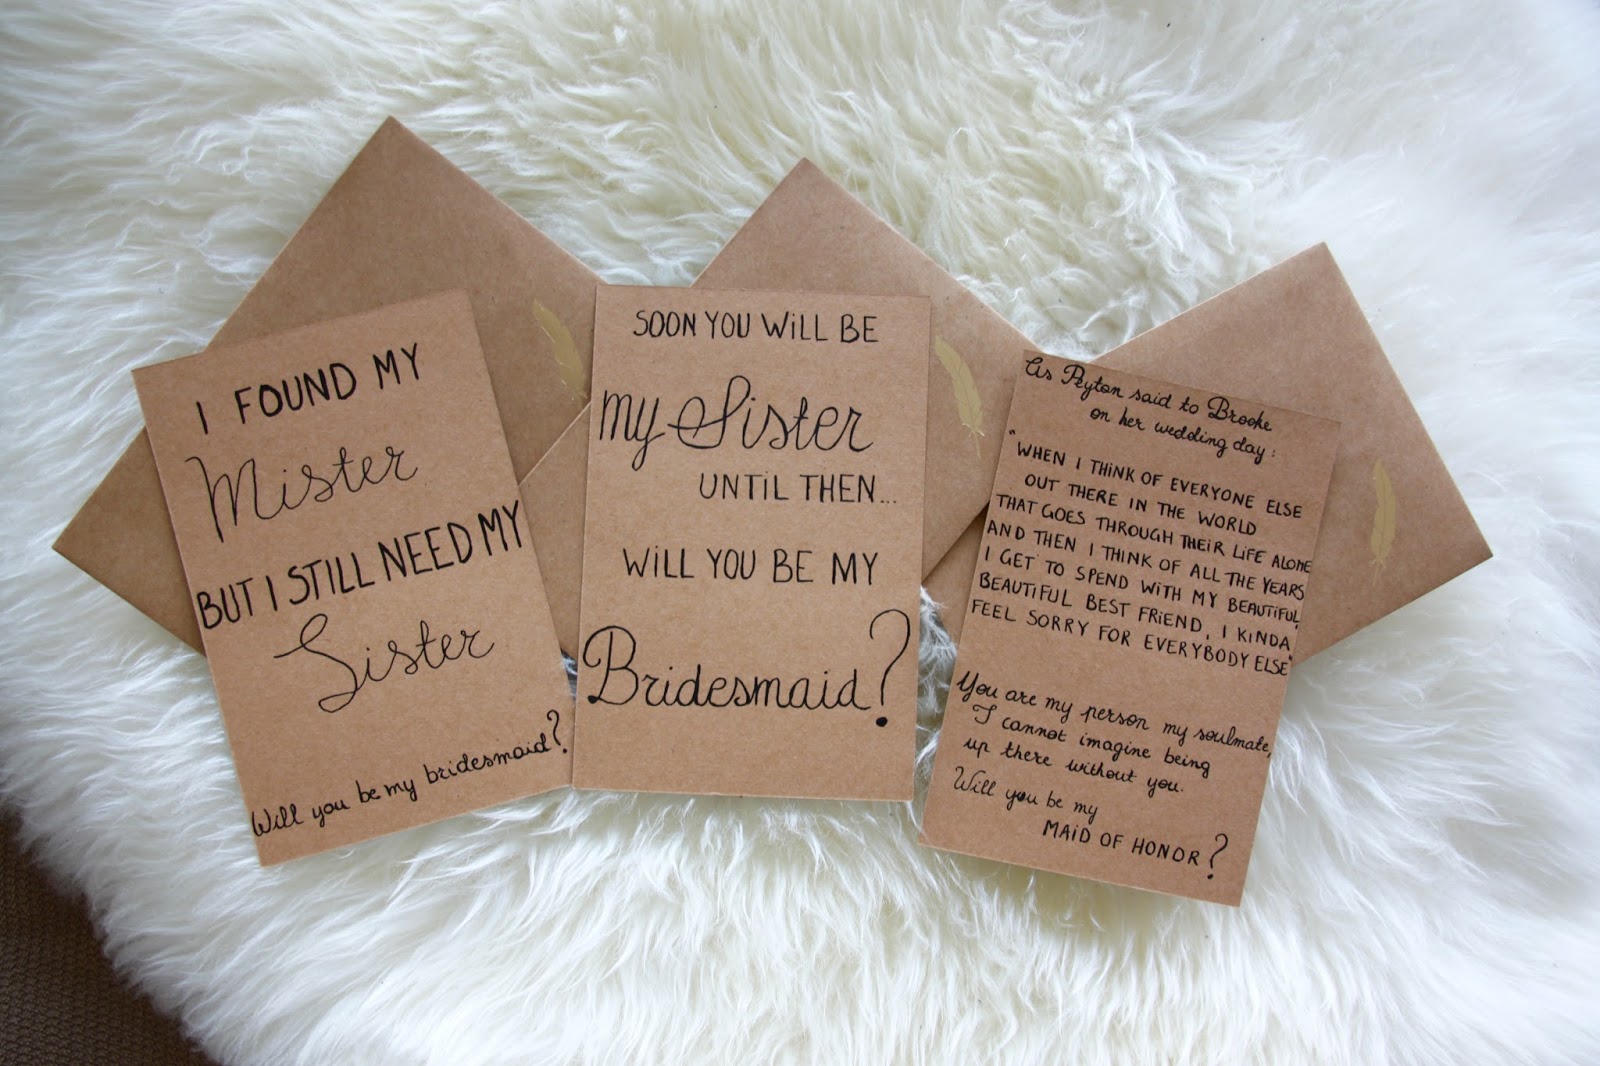 I FOUND MY
Mister
BUT I STILL NEED MY
Sister
Will you be my bridesmaid?
SOON YOU WILL BE
my Sister
UNTIL THEN...
WILL YOU BE MY
Bridesmaid?
As Peyton said to Brooke
on her wedding day:
"WHEN I THINK OF EVERYONE ELSE
OUT THERE IN THE WORLD
THAT GOES THROUGH THEIR LIFE ALONE
AND THEN I THINK OF ALL THE YEARS
I GET TO SPEND WITH MY BEAUTIFUL,
BEAUTIFUL BEST FRIEND, I KINDA
FEEL SORRY FOR EVERYBODY ELSE"
You are my person my soulmate,
I cannot imagine being
up there without you.
Will you be my
MAID OF HONOR?